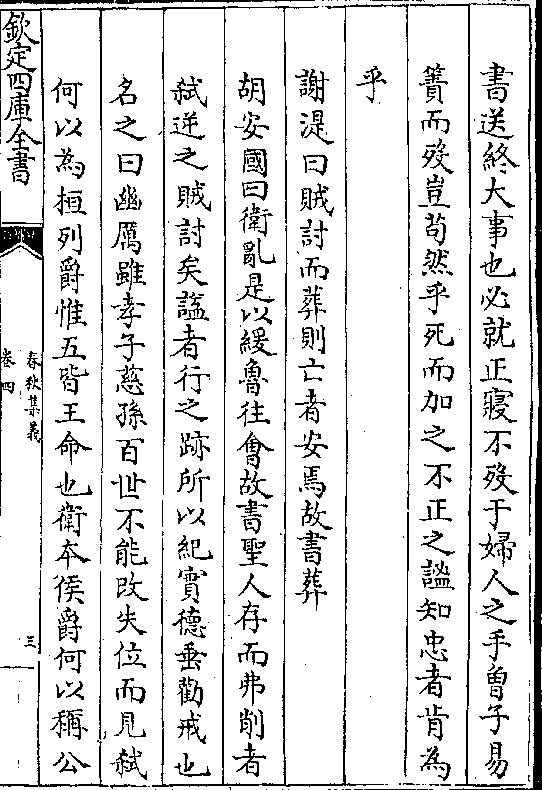 書送終大事也必就正寢不歿于婦人之手曾子易
簀而歿豈苟然乎死而加之不正之諡知忠者肯為
乎
謝湜曰賊討而葬則亡者安焉故書葬
胡安國曰衛亂是以緩魯往㑹故書聖人存而弗削者
弑逆之賊討矣諡者行之跡所以紀實德垂勸戒也
名之曰幽厲雖孝子慈孫百世不能改失位而見弑
何以為桓列爵惟五皆王命也衛本侯爵何以稱公
欽定四庫全書
春秋集義
卷四
三